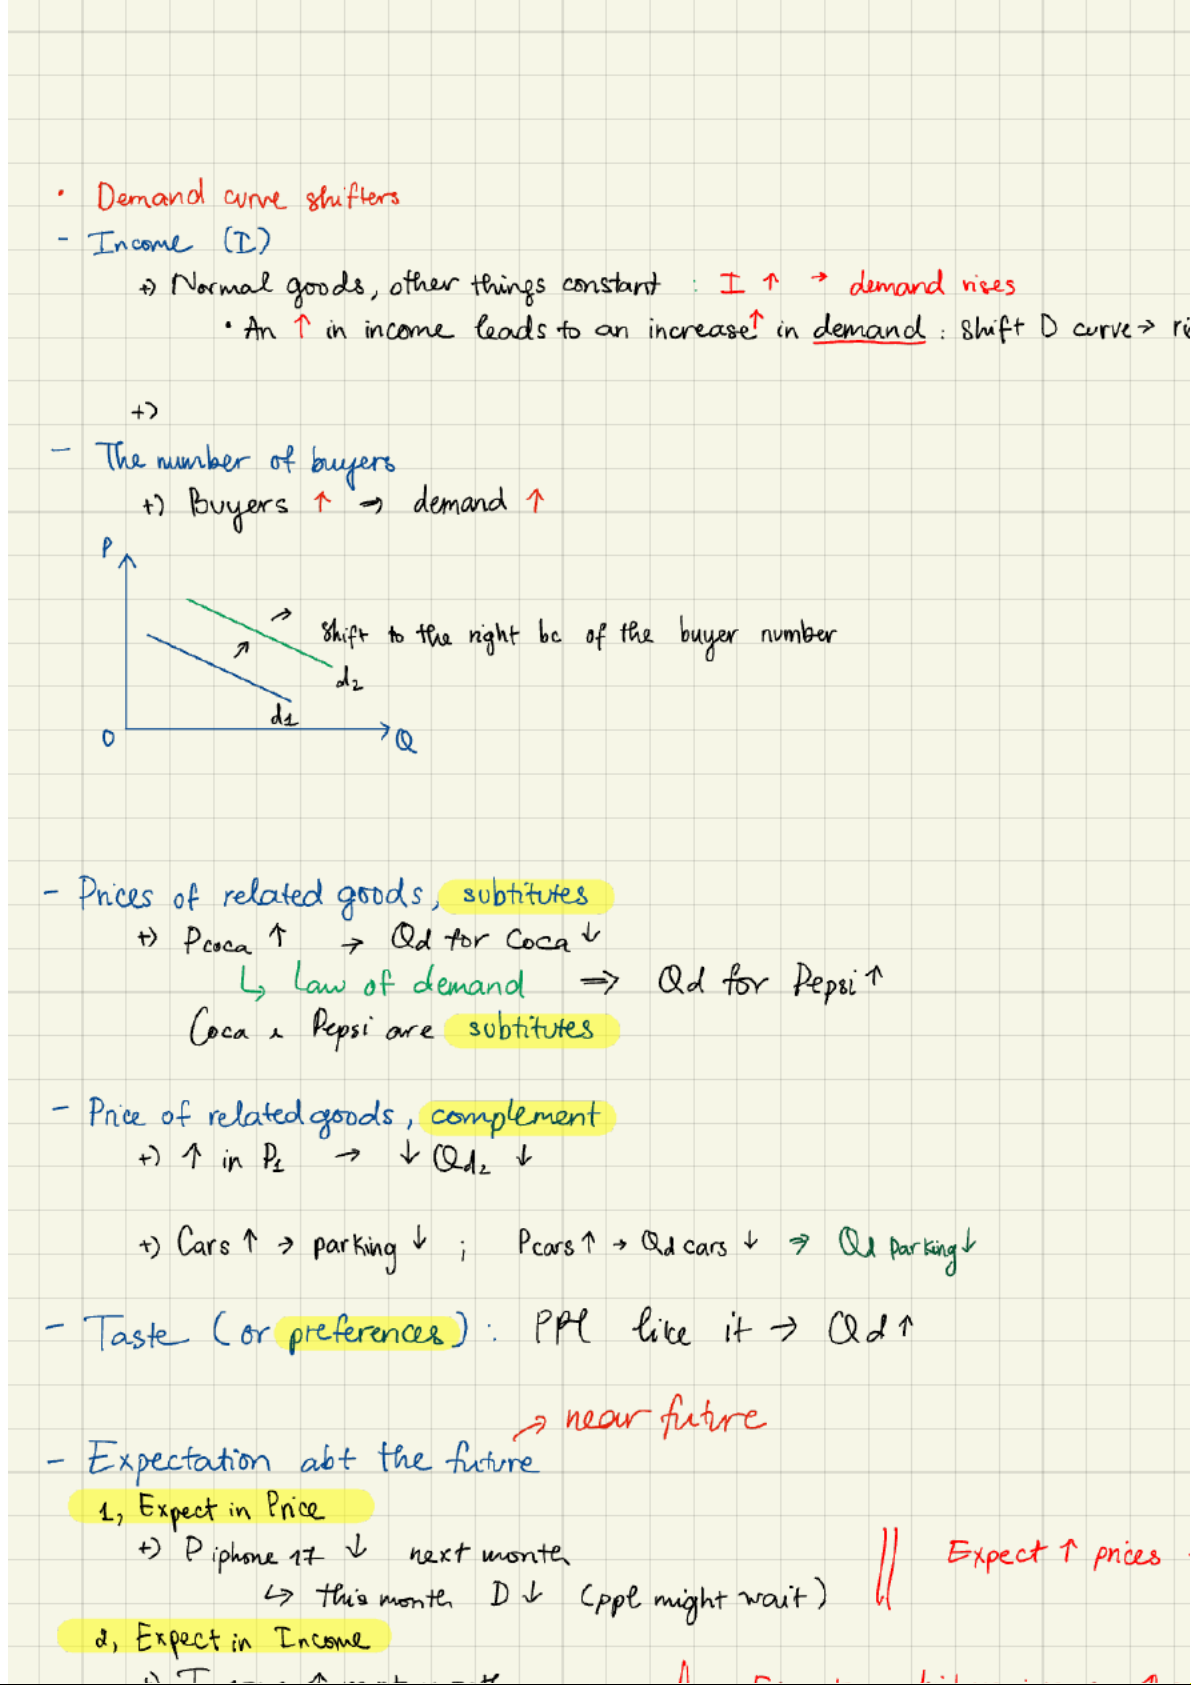 • Demand curve shifters
- Income (I)
+) Normal goods, other things constant : I ↑ → demand rises
• An ↑ in income leads to an increase↑ in demand : shift D curve →
+)
- The number of buyers
+) Buyers ↑ → demand ↑
P
shift to the right bc of the buyer number
d2
d1
O
Q
- Prices of related goods, subtitutes
+) Pcoca ↑ → Qd for Coca ↓
↳ Law of demand ⇒ Qd for Pepsi ↑
Coca & Pepsi are subtitutes
- Price of related goods, complement
+) ↑ in P1 → ↓ Qd2 ↓
+) Cars ↑ → parking ↓ ; Pcars ↑ → Qd cars ↓ ⇒ Qd parking ↓
- Taste (or preferences) : PPL like it → Qd ↑
→ near future
- Expectation abt the future
1, Expect in Price
+) P iphone 17 ↓ next month
Expect ↑ prices
↳ this month D ↓ (ppl might wait)
2, Expect in Income